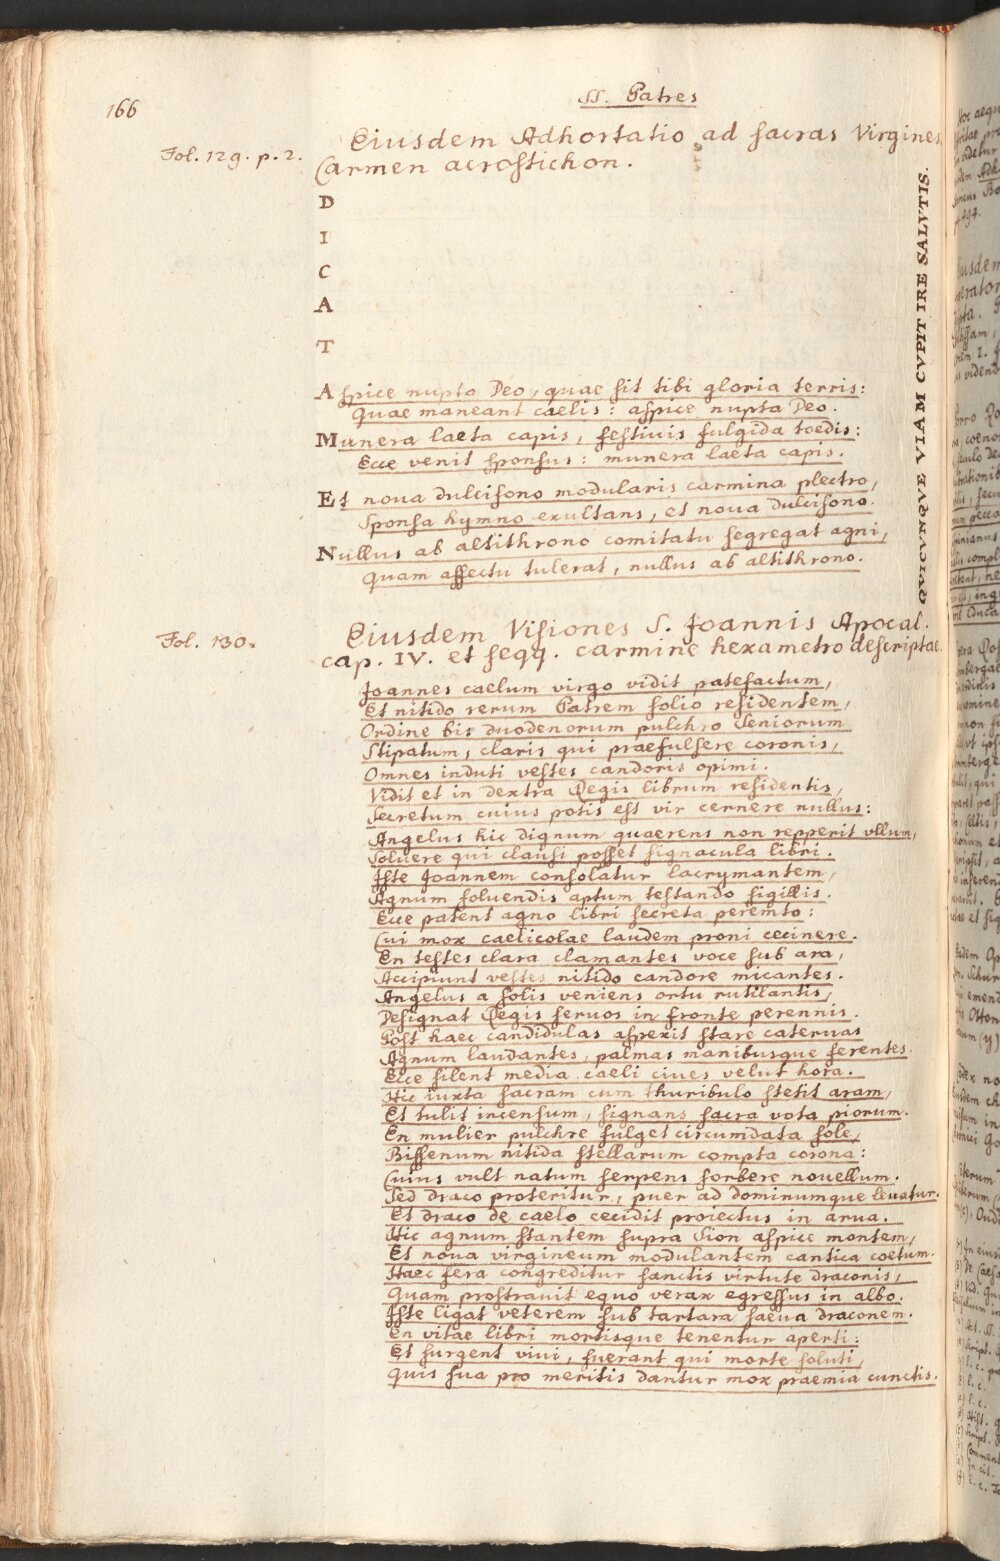 166
SS. Patres
Eiusdem Adhortatio ad sacras Virgines
Fol. 129. p. 2.
Carmen acrostichon.
D
I
C
A
T
QVICVNQVE VIAM CVPIT IRE SALVTIS.
Aspice nupta Deo, quae sit tibi gloria terris:
Quae maneant caelis: aspice nupta Deo.
Munera laeta capis, festiuis fulgida toedis:
Ecce venit sponsus: munera laeta capis.
Et noua dulcisono modularis carmina plectro,
Sponsa hymno exultans, et noua dulcisono.
Nullus ab altithrono comitatu segregat agni,
Quam affectu tulerat, nullus ab altithrono.
Fol. 130.
Eiusdem Visiones S. Joannis Apocal.
cap. IV. et seqq. carmine hexametro descriptae.
Joannes caelum virgo vidit patefactum,
Et nitido rerum Patrem solio residentem,
Ordine bis duodenorum pulchro Seniorum
Stipatum, claris qui praefulsere coronis,
Omnes induti vestes candoris opimi.
Vidit et in dextra Regis librum residentis,
Secretum cuius potis est vir cernere nullus:
Angelus hic dignum quaerens non repperit vllum,
Soluere qui clausi posset signacula libri.
Iste Joannem consolatur lacrymantem,
Agnum soluendis aptum testando sigillis.
Ecce patent agno libri secreta peremto:
Cui mox caelicolae laudem proni cecinere.
En testes clara clamantes voce sub ara,
Accipiunt vestes nitido candore micantes.
Angelus a solis veniens ortu rutilantis,
Designat Regis seruos in fronte perennis.
Post haec candidulas aspexit stare cateruas
Agnum laudantes, palmas manibusque ferentes.
Ecce silent media caeli ciues velut hora.
Hic iuxta sacram cum thuribulo stetit aram,
Et tulit incensum, signans sacra vota piorum.
En mulier pulchre fulget circumdata sole,
Bissenum nitida stellarum compta corona:
Cuius vult natum serpens sorbere nouellum.
Sed draco proteritur, puer ad dominumque leuatur.
Et draco de caelo cecidit proiectus in arua.
Hic agnum stantem supra Sion aspice montem,
Et noua virgineum modulantem cantica coetum.
Haec fera congreditur sanctis virtute draconis,
Quam prostrauit equo verax egressus in albo.
Iste ligat veterem sub tartara saeua draconem.
En vitae libri mortisque tenentur aperti:
Et surgent viui, fuerant qui morte soluti,
Quis sua pro meritis dantur mox praemia cunctis.